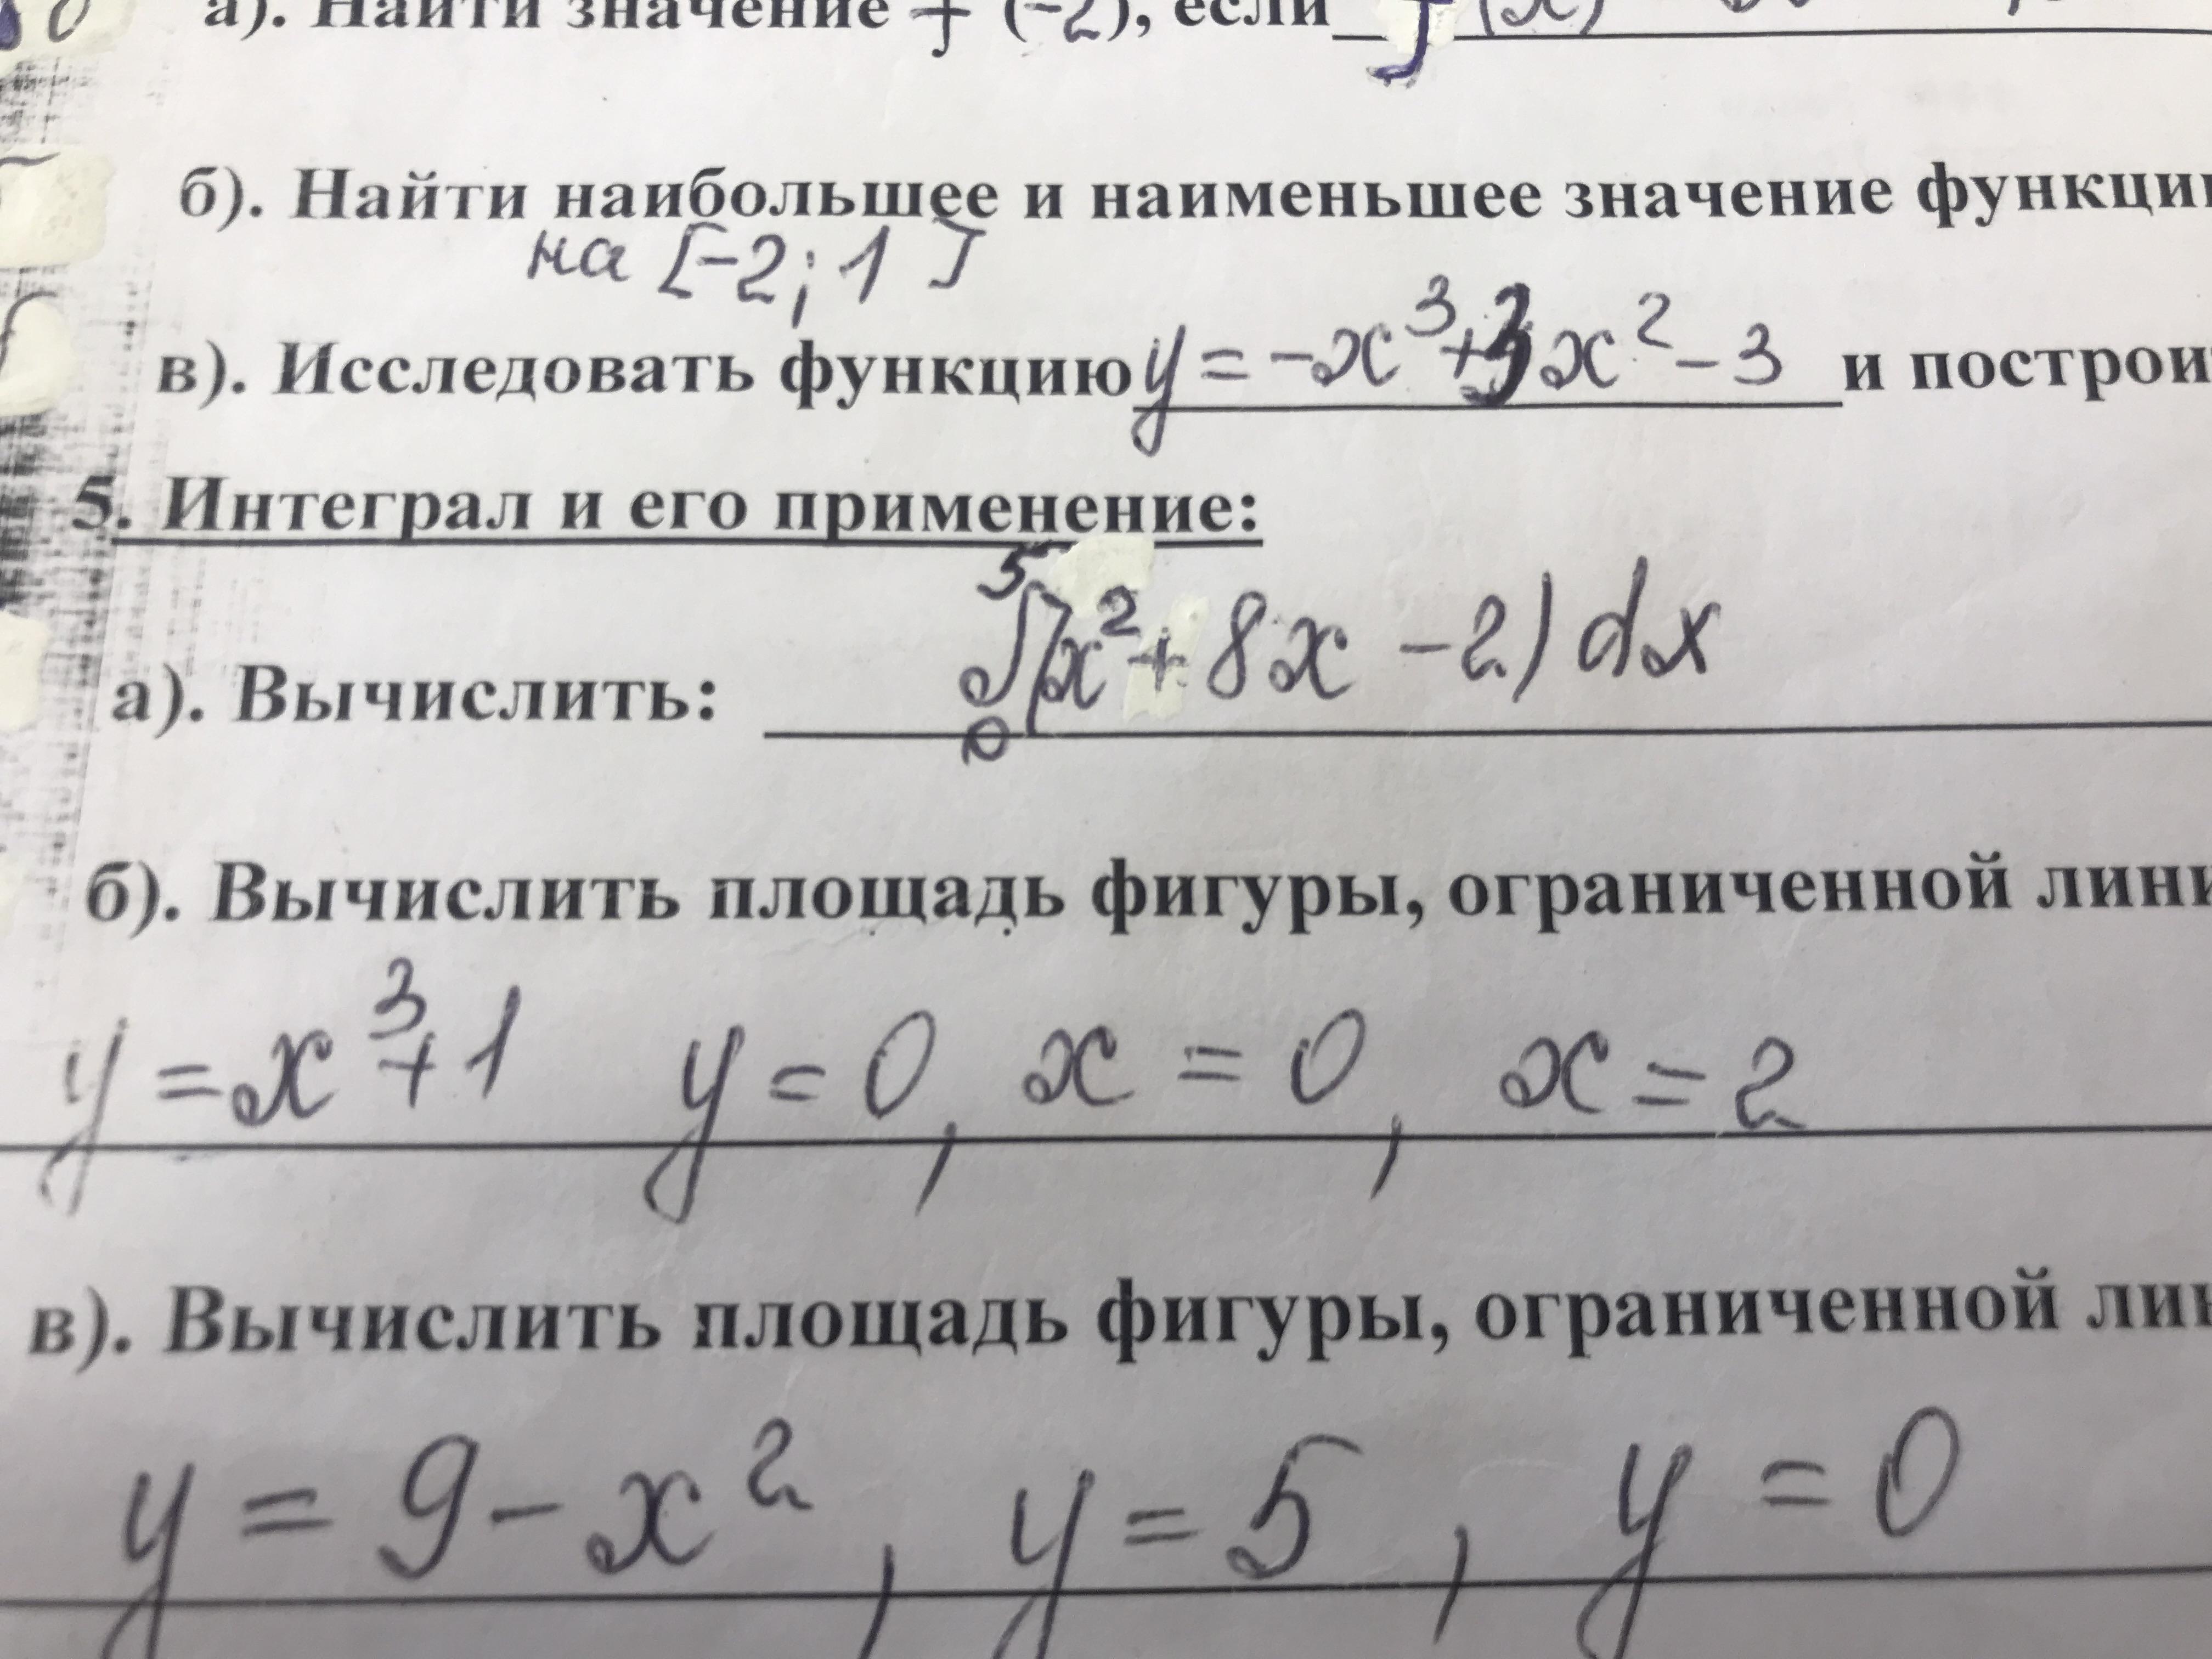 а). Найти значение f (-2), если f (x)
б). Найти наибольшее и наименьшее значение функции
на [-2; 1]
в). Исследовать функцию y = -x³+3x² - 3 и построи
5. Интеграл и его применение:
а). Вычислить: ⁵∫₀(x² + 8x - 2) dx
б). Вычислить площадь фигуры, ограниченной лини
y = x³ + 1 y = 0, x = 0, x = 2
в). Вычислить площадь фигуры, ограниченной лин
y = 9 - x², y = 5, y = 0